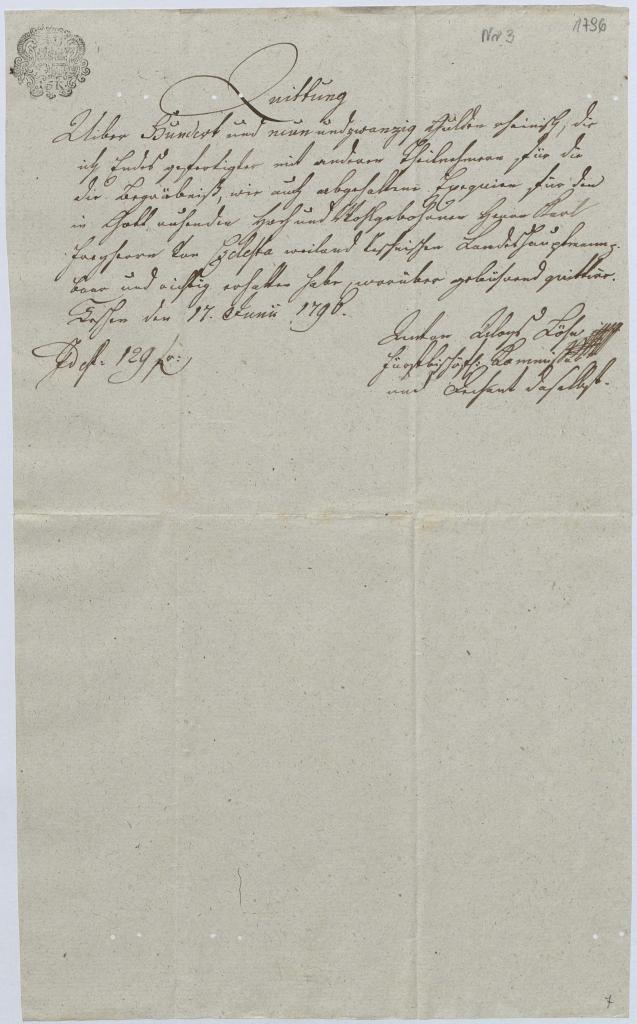 Nro 3
1796
Quittung
Uiber Hundert und neun und zwanzig Gulden rheinisch, die
ich Endes gefertigter mit anderen Theilnehmern für die
die Begräbniß, wie auch abgehaltene Exequien für den
in Gott ruhenden Hoch und Wohlgebohrnen Herrn Karl
Freyherrn von Celesta weiland Teschnischen Landeshauptmann
baar und richtig erhalten habe, worüber gebührend quittire.
Teschen den 17. Junii 1796.
Id est. 129 fr:
Anton Aloys Löhn
fürstbischöfl: Kommissar
und Dechant daselbst.
7